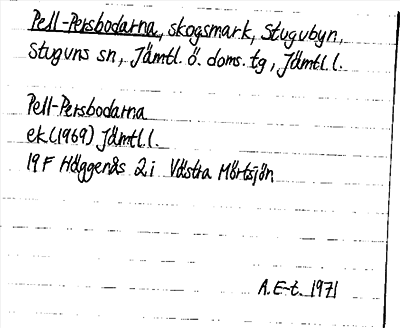 Pell-Persbodarna, skogsmark, Stugubyn,
Stuguns sn, Jämtl. ö. doms. tg, Jämtl. l.
Pell-Persbodarna
ek. (1969) Jämtl. l.
19 F Häggenås 2 i Västra Mörtsjön
A. E-t. 1971